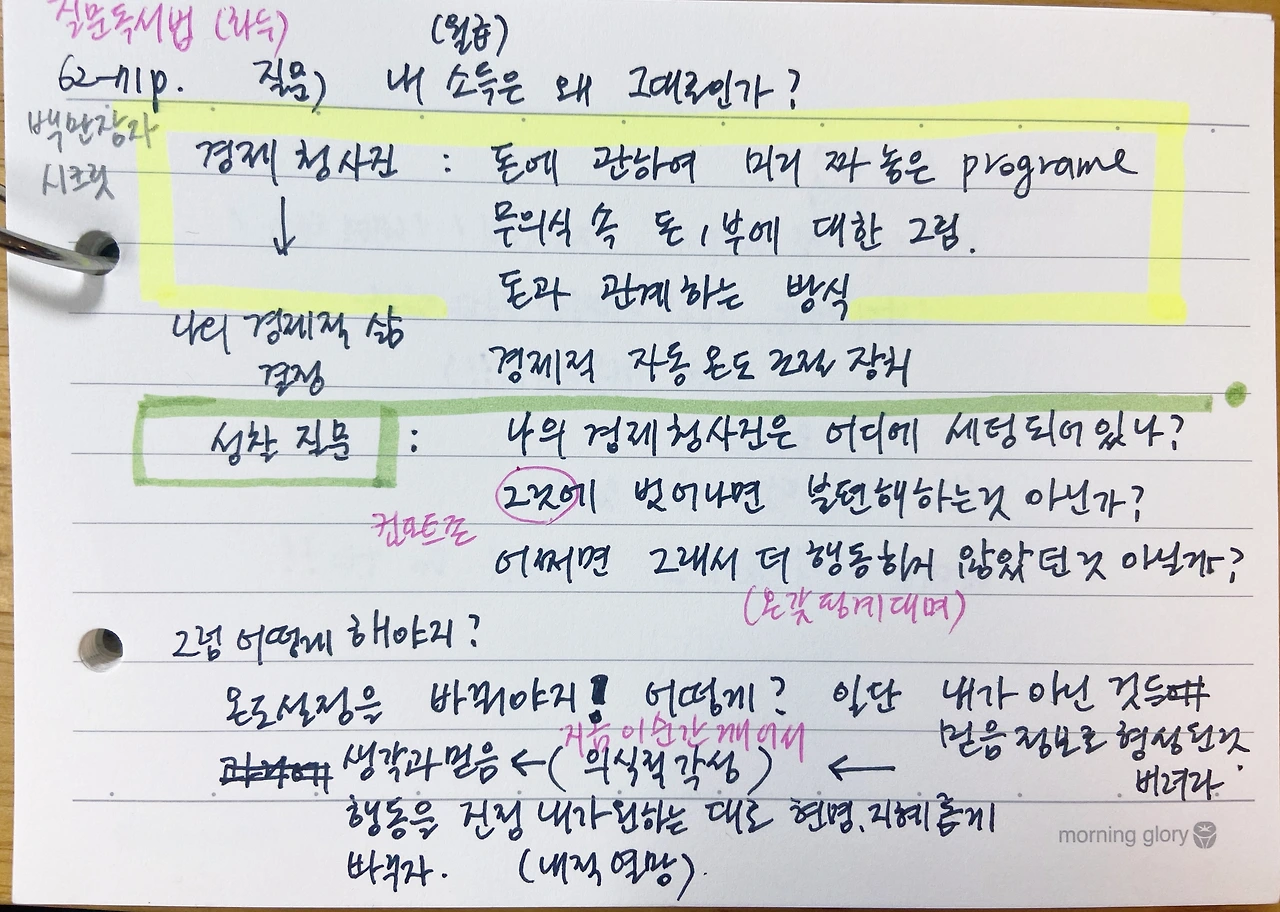 질문독서법 (화수)
(월급)
62-71p. 질문) 내 소득은 왜 그대로인가?
백만장자
시크릿
경제 청사진 : 돈에 관하여 미리 짜 놓은 programe
↓ 무의식 속 돈, 부에 대한 그림.
돈과 관계하는 방식
나의 경제적 삶
결정 경제적 자동 온도 조절 장치
성찰 질문 : 나의 경제청사진은 어디에 세팅되어있나?
그것에 벗어나면 불편해하는것 아닌가?
컴포트존
어쩌면 그래서 더 행동하지 않았던것 아닐까?
(온갖 핑계대며)
그럼 어떻게 해야지?
온도설정을 바꿔야지! 어떻게? 일단 내가 아닌 것들
지금 이순간 깨어서 믿음 정보로 형성된것
생각과 믿음 ← (의식적 각성) ← 버려라.
행동을 진정 내가원하는 대로 현명, 지혜롭게
바꾸자. (내적 열망).
morning glory